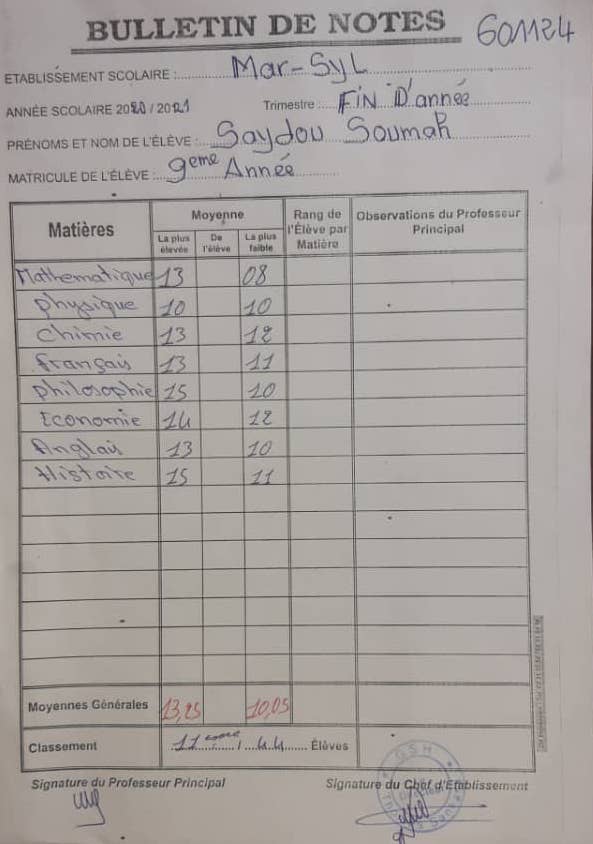 BULLETIN DE NOTES
601124
ETABLISSEMENT SCOLAIRE : Mar-Syl
ANNÉE SCOLAIRE 2020 / 2021 Trimestre : FIN D'année
PRÉNOMS ET NOM DE L'ÉLÈVE : Saydou Soumah
MATRICULE DE L'ÉLÈVE : 9eme Année
Matières Moyenne Rang de l'Élève par Matière Observations du Professeur Principal
La plus élevée De l'élève La plus faible
Mathematique 13 08
physique 10 10
chimie 13 12
français 13 11
philosophie 15 10
Economie 14 12
Anglais 13 10
Histoire 15 11
Moyennes Générales 13,25 10,05
Classement 11eme / 44 Élèves
Signature du Professeur Principal Signature du Chef d'Etablissement
G.S.H.